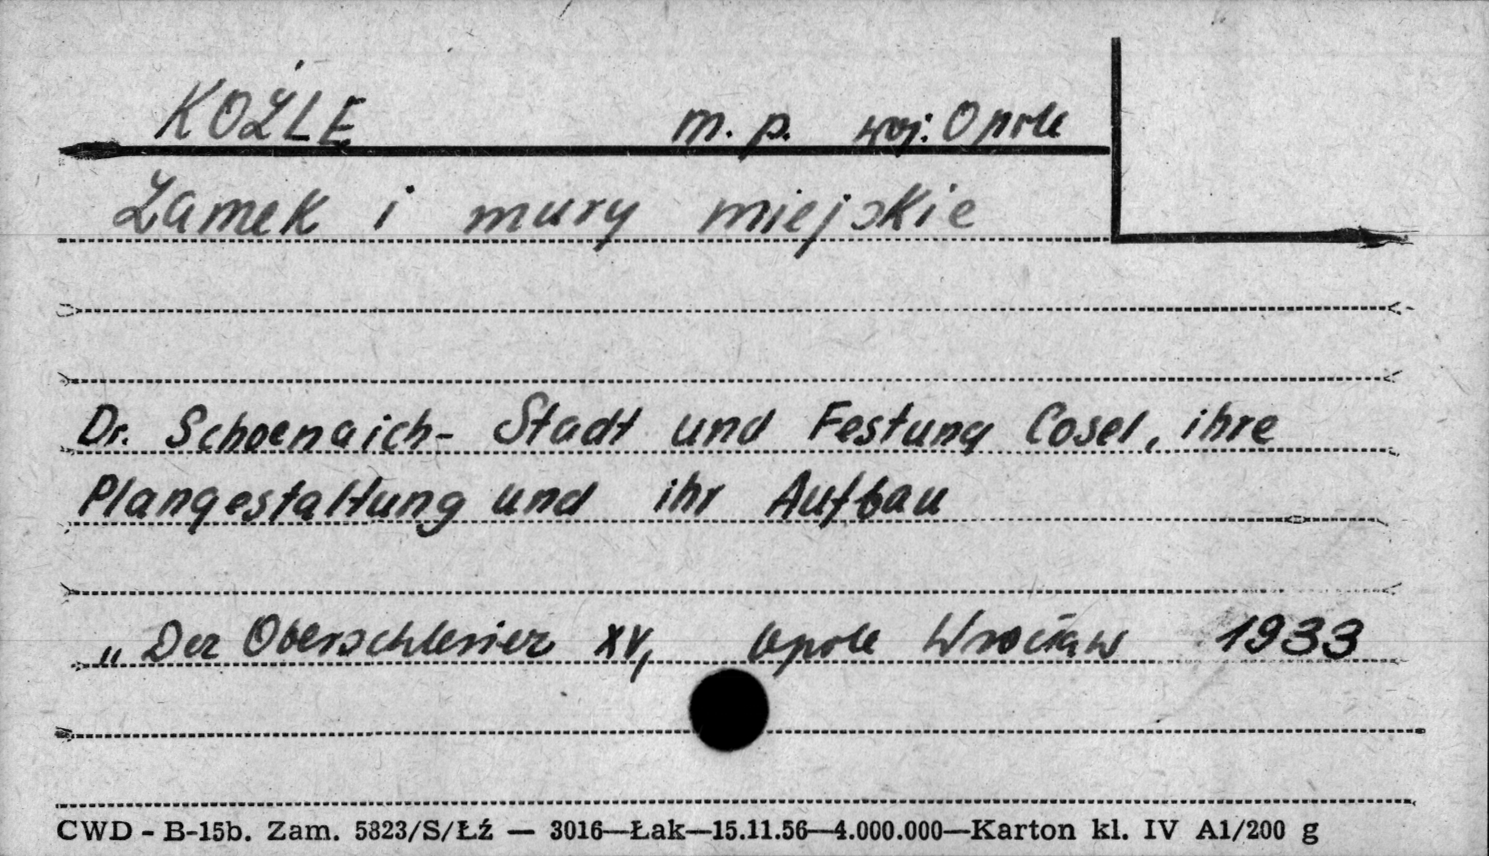 KOŹLE m. p. woj. Opole
Zamek i mury miejskie
Dr. Schoenaich- Stadt und Festung Cosel, ihre
Plangestaltung und ihr Aufbau
„Der Oberschlesier XV, Opole Wrocław 1933
CWD - B-15b. Zam. 5823/S/Łź — 3016—Łak—15.11.56—4.000.000—Karton kl. IV A1/200 g